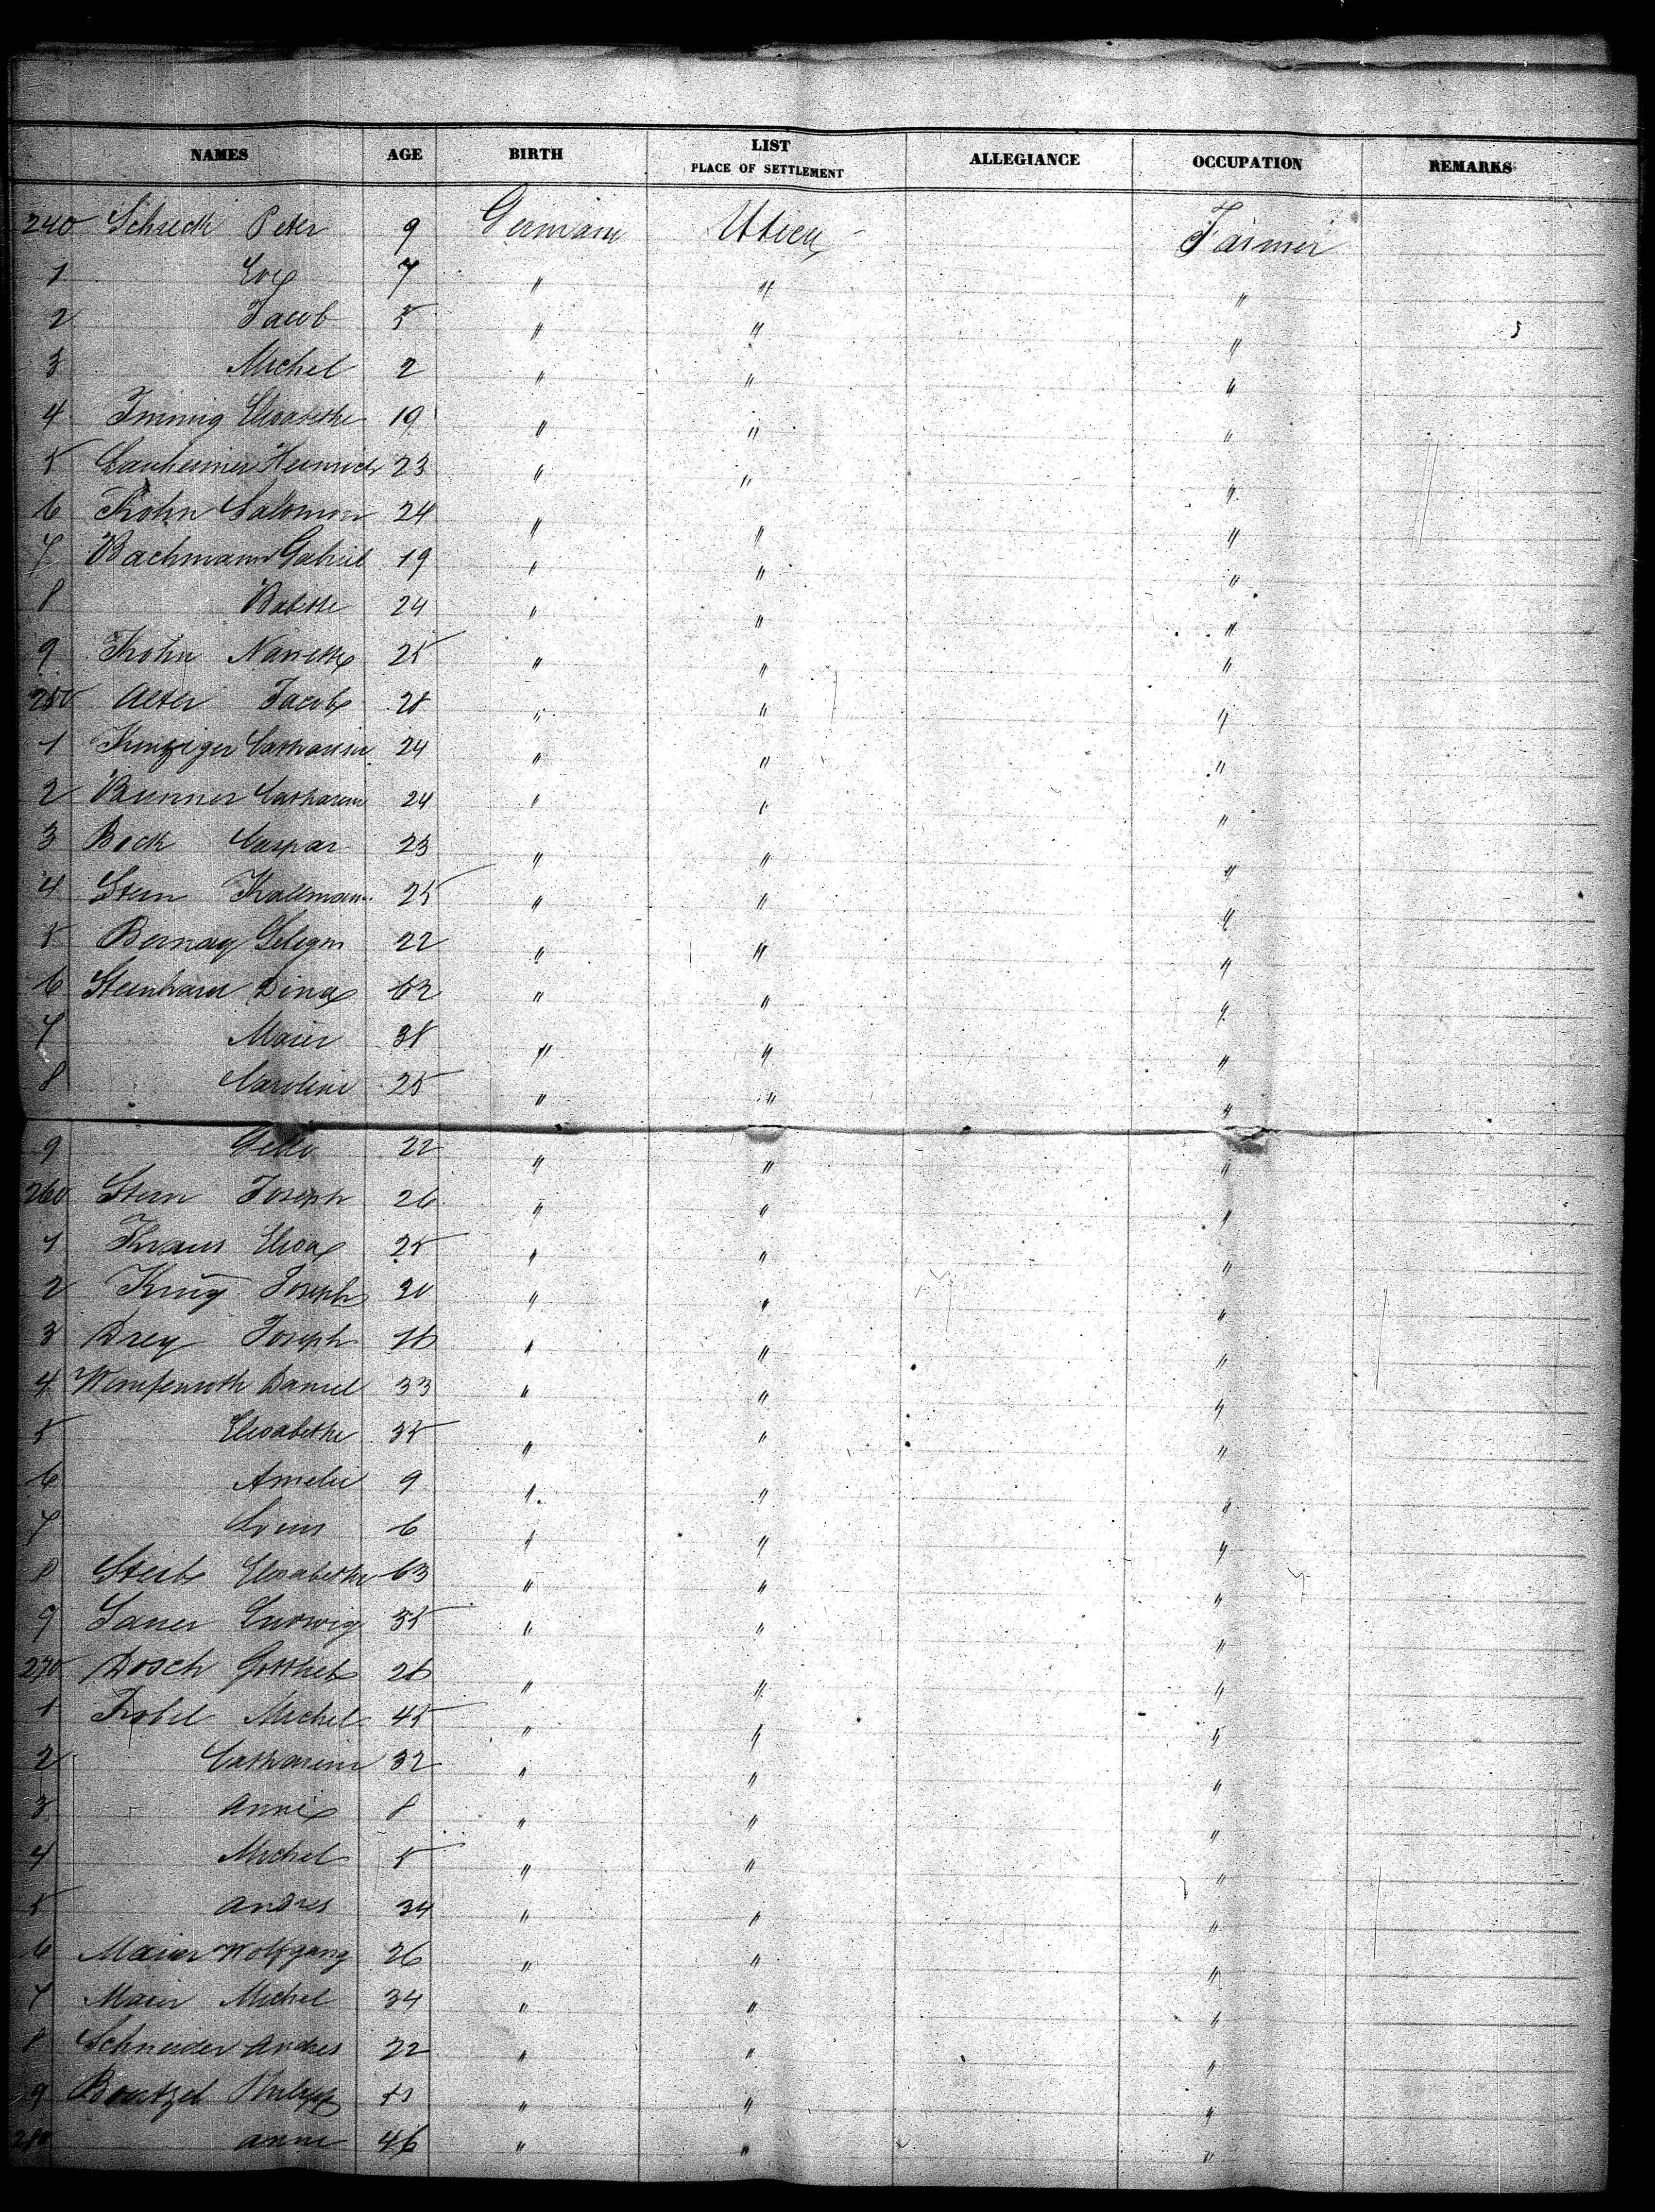 NAMES AGE BIRTH LIST PLACE OF SETTLEMENT ALLEGIANCE OCCUPATION REMARKS
240 Schreck Peter 9 Germany Utica Farmer
1 Eva 7 " " "
2 Jacob 5 " " "
3 Michel 2 " " "
4 Immig Elisabethe 19 " " "
5 Lauheimer Heinrich 23 " " "
6 Kohn Salomon 24 " " "
7 Bachmann Gabriel 19 " " "
8 Babette 24 " " "
9 Kohn Nanette 25 " " "
250 Alter Jacob 28 " " "
1 Kunziger Catharine 24 " " "
2 Brunner Catharine 24 " " "
3 Bock Caspar 23 " " "
4 Stern Kallmann 25 " " "
5 Bernay 22 " " "
6 Steinharer Dina 62 " " "
7 Maier 38 " " "
8 Caroline 25 " " "
9 22 " " "
260 Stern Joseph 26 " " "
1 Kraus Elisa 25 " " "
2 Krug Joseph 20 " " "
3 Drey Joseph 16 " " "
4 Daniel 33 " " "
5 Elisabethe 35 " " "
6 Amelie 9 " " "
7 Louis 6 " " "
8 Steib Elisabethe 63 " " "
9 Sauer Ludwig 35 " " "
270 Dosch Gottlieb 26 " " "
1 Kobel Michel 45 " " "
2 Catharine 32 " " "
3 Anne 8 " " "
4 Michel 5 " " "
5 Andres 34 " " "
6 Maier Wolfgang 26 " " "
7 Maier Michel 34 " " "
8 Schneider Andres 22 " " "
9 Philipp " " "
280 Anne 46 " " "